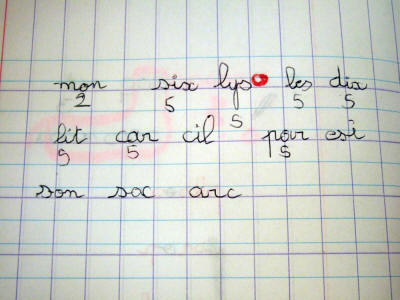 mon six lys les dix
2 5 5 5 5
lit car cil par
5 5 5
son sac arc